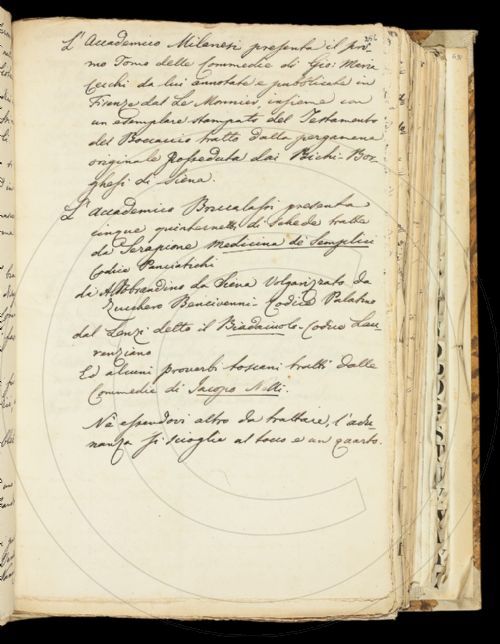 256
L'Accademico Milanesi presenta il pri-
mo Tomo delle Commedie di Gio: Maria
Cecchi da lui annotate e pubblicate in
Firenze dal Le Monnier, insieme con
un esemplare stampato del Testamento
del Boccaccio tratto dalla pergamena
originale posseduta dai Bichi-Bor-
ghesi di Siena.
L'Accademico Brucalassi presenta
cinque quinternetti di Schede tratte
da Serapione Medicina de Semplici
Codice Panciatichi
da Aldobrandino da Siena Volgarizzato da
Zucchero Bencivenni - Codice Palatino
dal Lenzi detto il Biadaiuolo - Codice Lau-
renziano
Ed alcuni proverbi toscani tratti dalle
Commedie di Jacopo Nelli.
Nè essendovi altro da trattare, l'adu-
nanza si scioglie al tocco e un quarto.